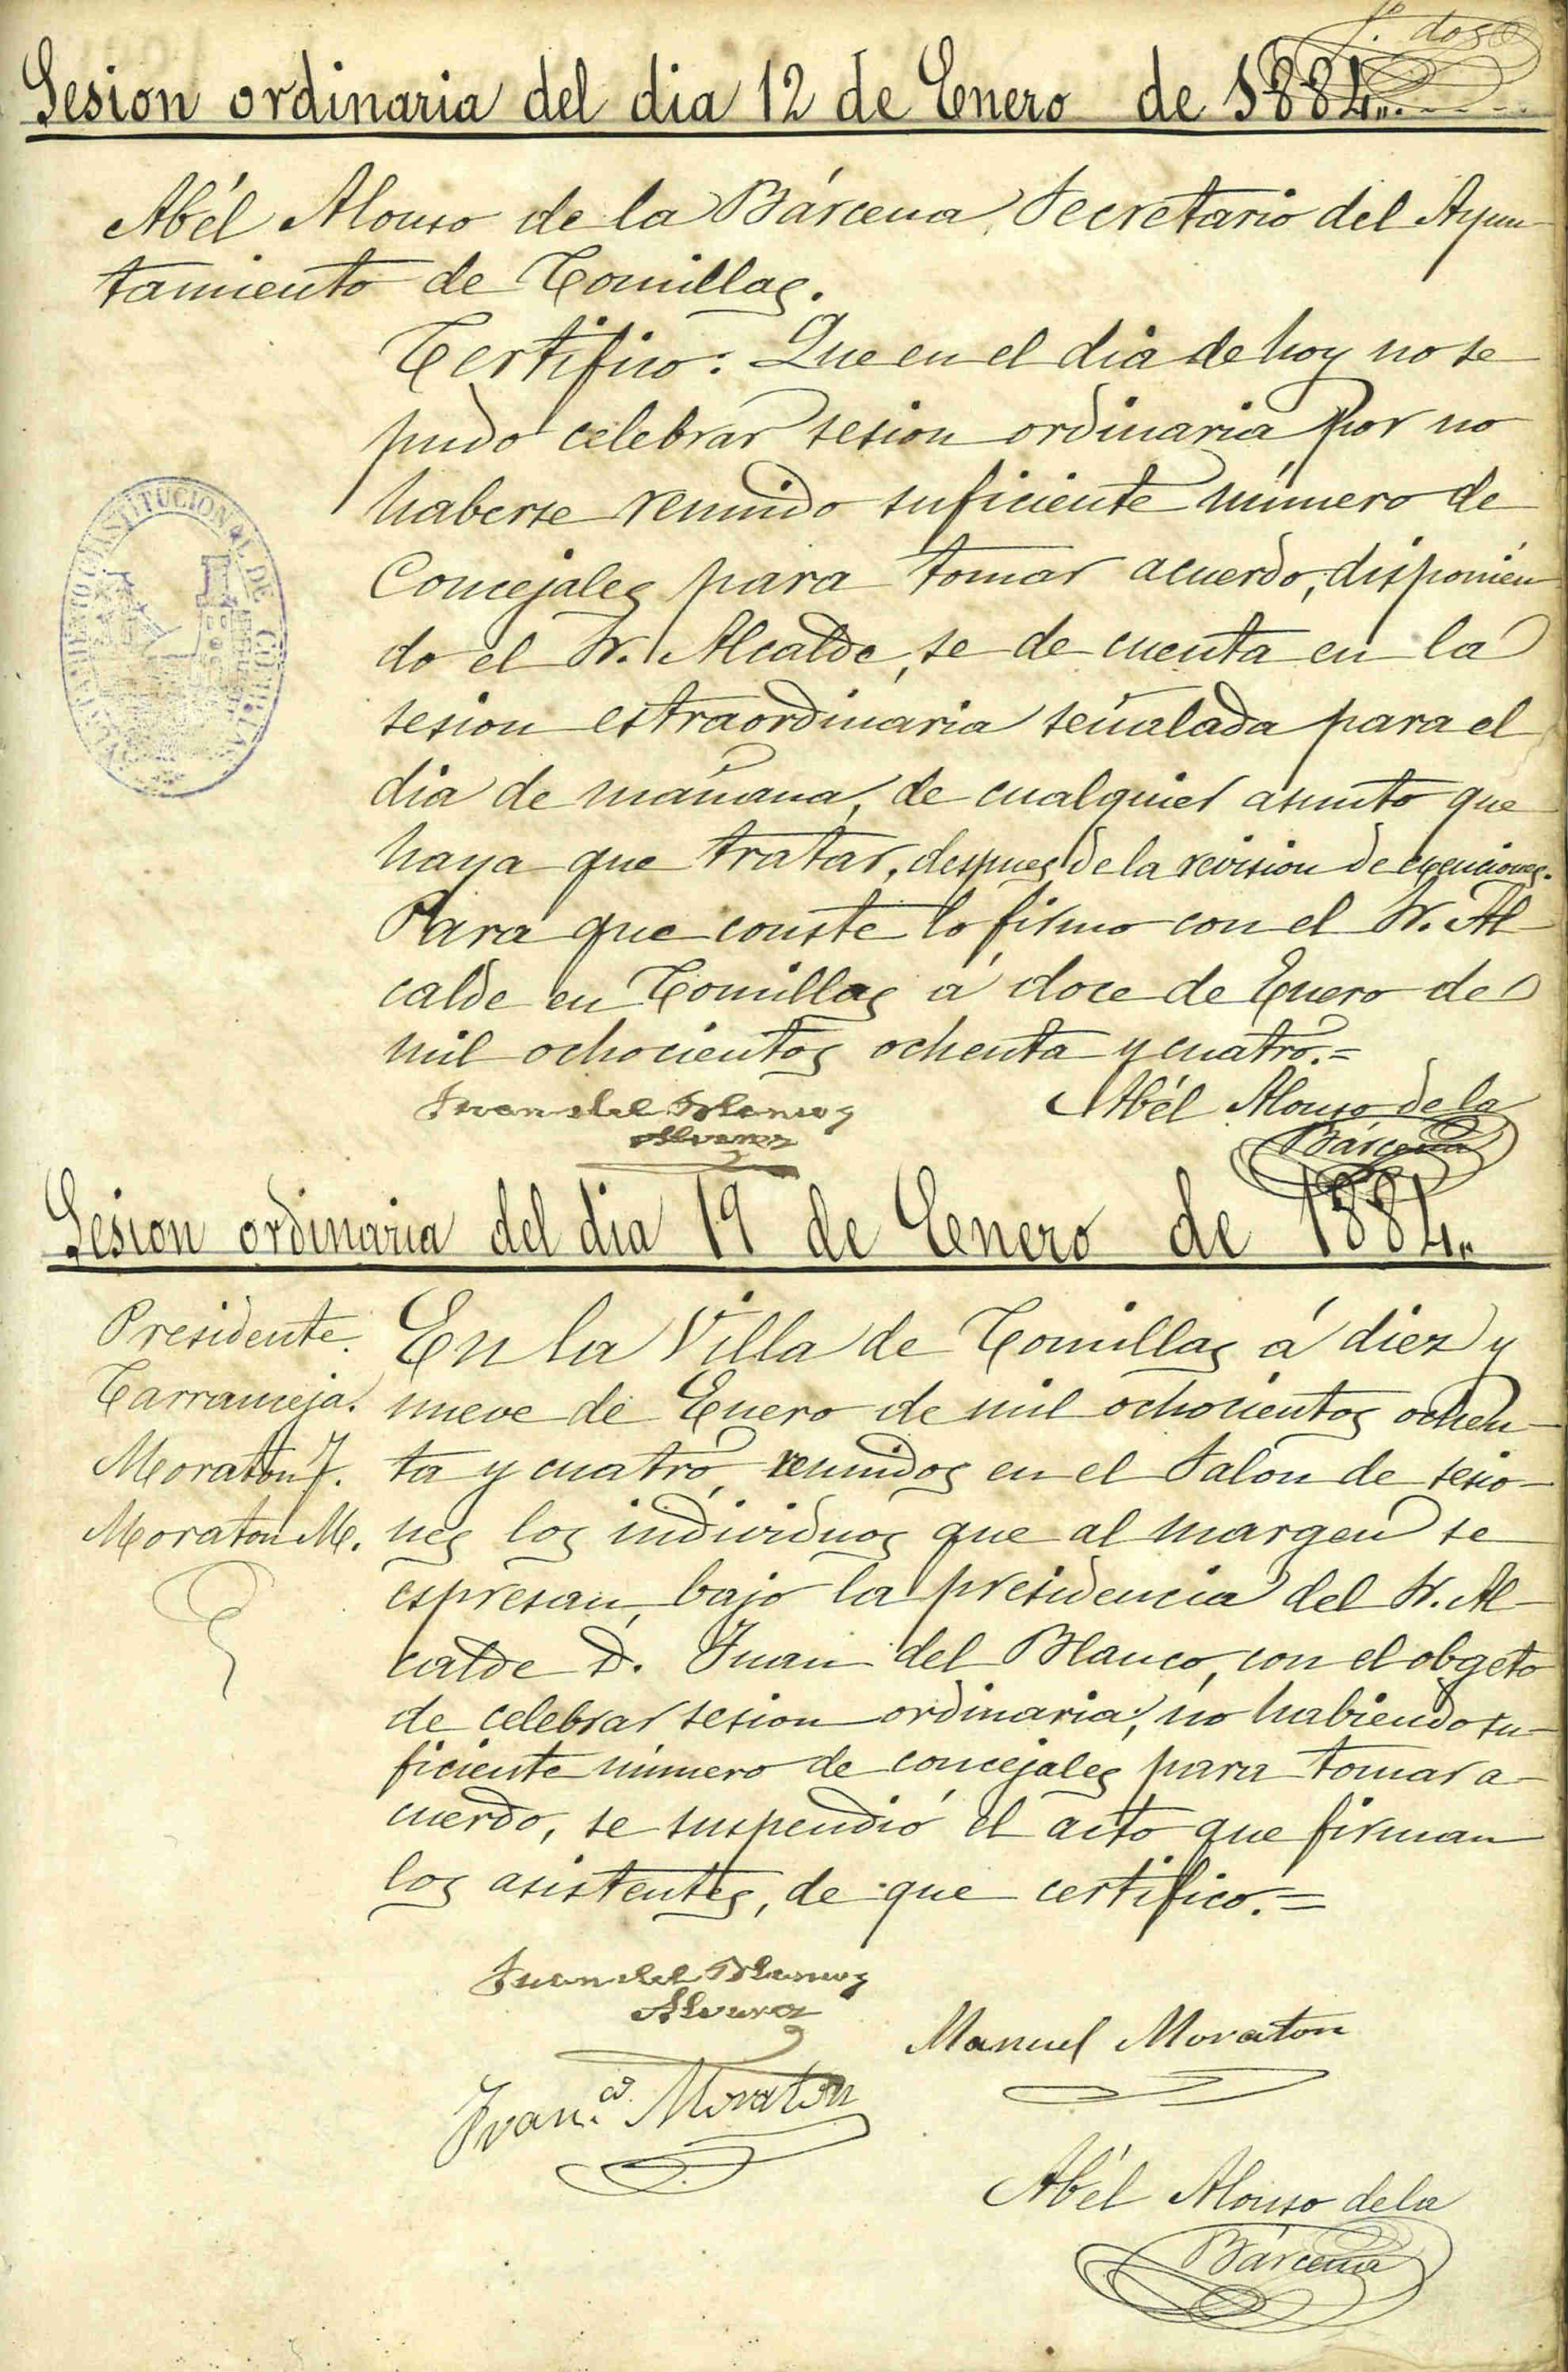 fº. dos
Sesion ordinaria del dia 12 de Enero de 1884.
Abél Alonso de la Bárcena, Secretario del Ayun-
tamiento de Comillas.
Certifico: Que en el dia de hoy no se
pudo celebrar sesion ordinaria por no
haberse reunido suficiente número de
Concejales para tomar acuerdo, disponien-
do el Sr. Alcalde, se de cuenta en la
sesion estraordinaria señalada para el
dia de mañana, de cualquier asunto que
haya que tratar, despues de la revision de
Para que conste lo firmo con el Sr. Al-
calde en Comillas á doce de Enero de
mil ochocientos ochenta y cuatro.=
AYUNTAMIENTO CONSTITUCIONAL DE COMILLAS
Juan del Blanco y
Alvarez
Abél Alonso de la
Bárcena
Sesion ordinaria del dia 19 de Enero de 1884.
Presidente.
Tarrameja.
Moraton F.
Moraton M.
En la Villa de Comillas á diez y
nueve de Enero de mil ochocientos ochen-
ta y cuatro, reunidos en el Salon de sesio-
nes los individuos que al margen se
espresan, bajo la presidencia del Sr. Al-
calde D. Juan del Blanco, con el obgeto
de celebrar sesion ordinaria; no habiendo su-
ficiente número de concejales para tomar a-
cuerdo, se suspendió el acto que firman
los asistentes, de que certifico.=
Juan del Blanco y
Alvarez
Manuel Moraton
Franco. Moraton
Abél Alonso de la
Bárcena